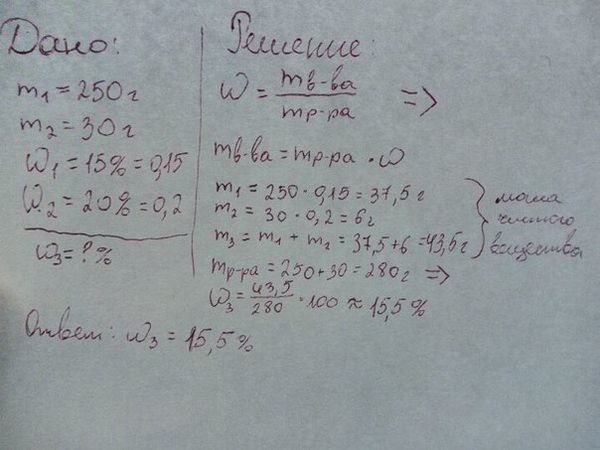 Дано:
m₁ = 250 г
m₂ = 30 г
ω₁ = 15% = 0,15
ω₂ = 20% = 0,2
ω₃ = ? %
Решение:
ω = mв-ва / mр-ра =>
mв-ва = mр-ра · ω
m₁ = 250 · 0,15 = 37,5 г
m₂ = 30 · 0,2 = 6 г
m₃ = m₁ + m₂ = 37,5 + 6 = 43,5 г
масса
чистого
вещества
mр-ра = 250 + 30 = 280 г =>
ω₃ = 43,5 / 280 · 100 ≈ 15,5 %
Ответ: ω₃ = 15,5 %